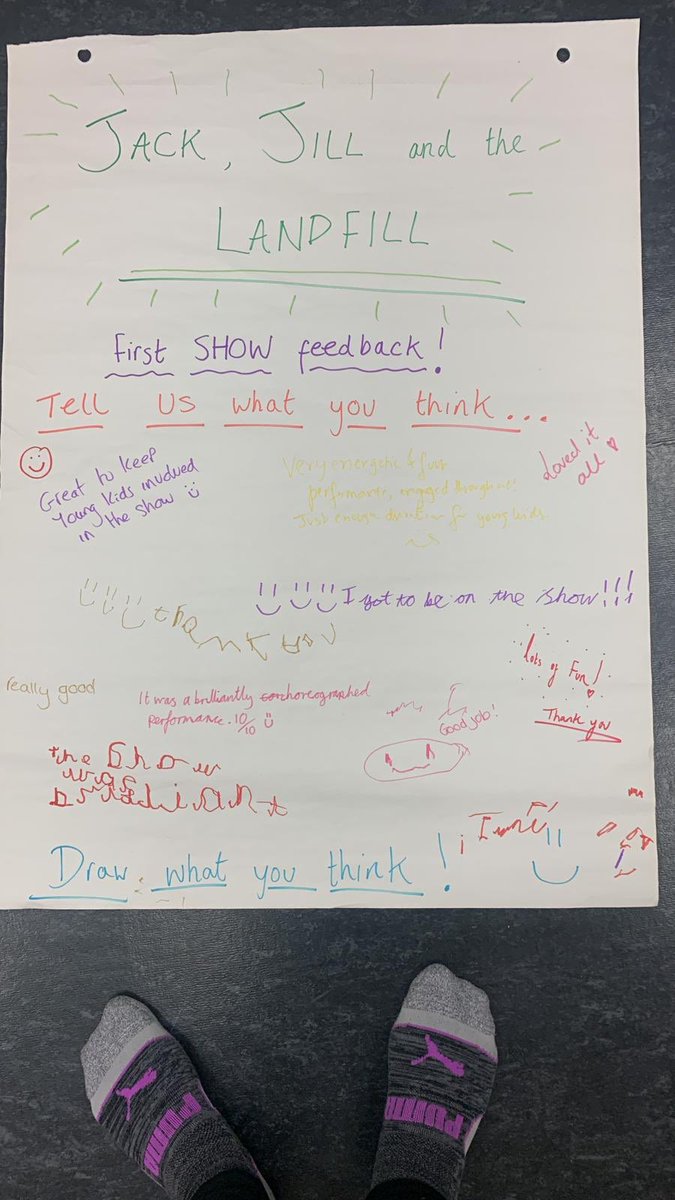 JACK, JILL and the
LANDFILL
First SHOW feedback!
Tell us what you think...
Great to keep
Young Kids involved
in the show
Very energetic & fun
performance, engaged throughout!
Just enough for young kids
Loved it
all
thank you
I got to be on the show!!!
lots of Fun!
Thank you
really good
It was a brilliantly choreographed
performance. 10/10
Good job!
the show
was
Draw what you think!
PUMA
PUMA